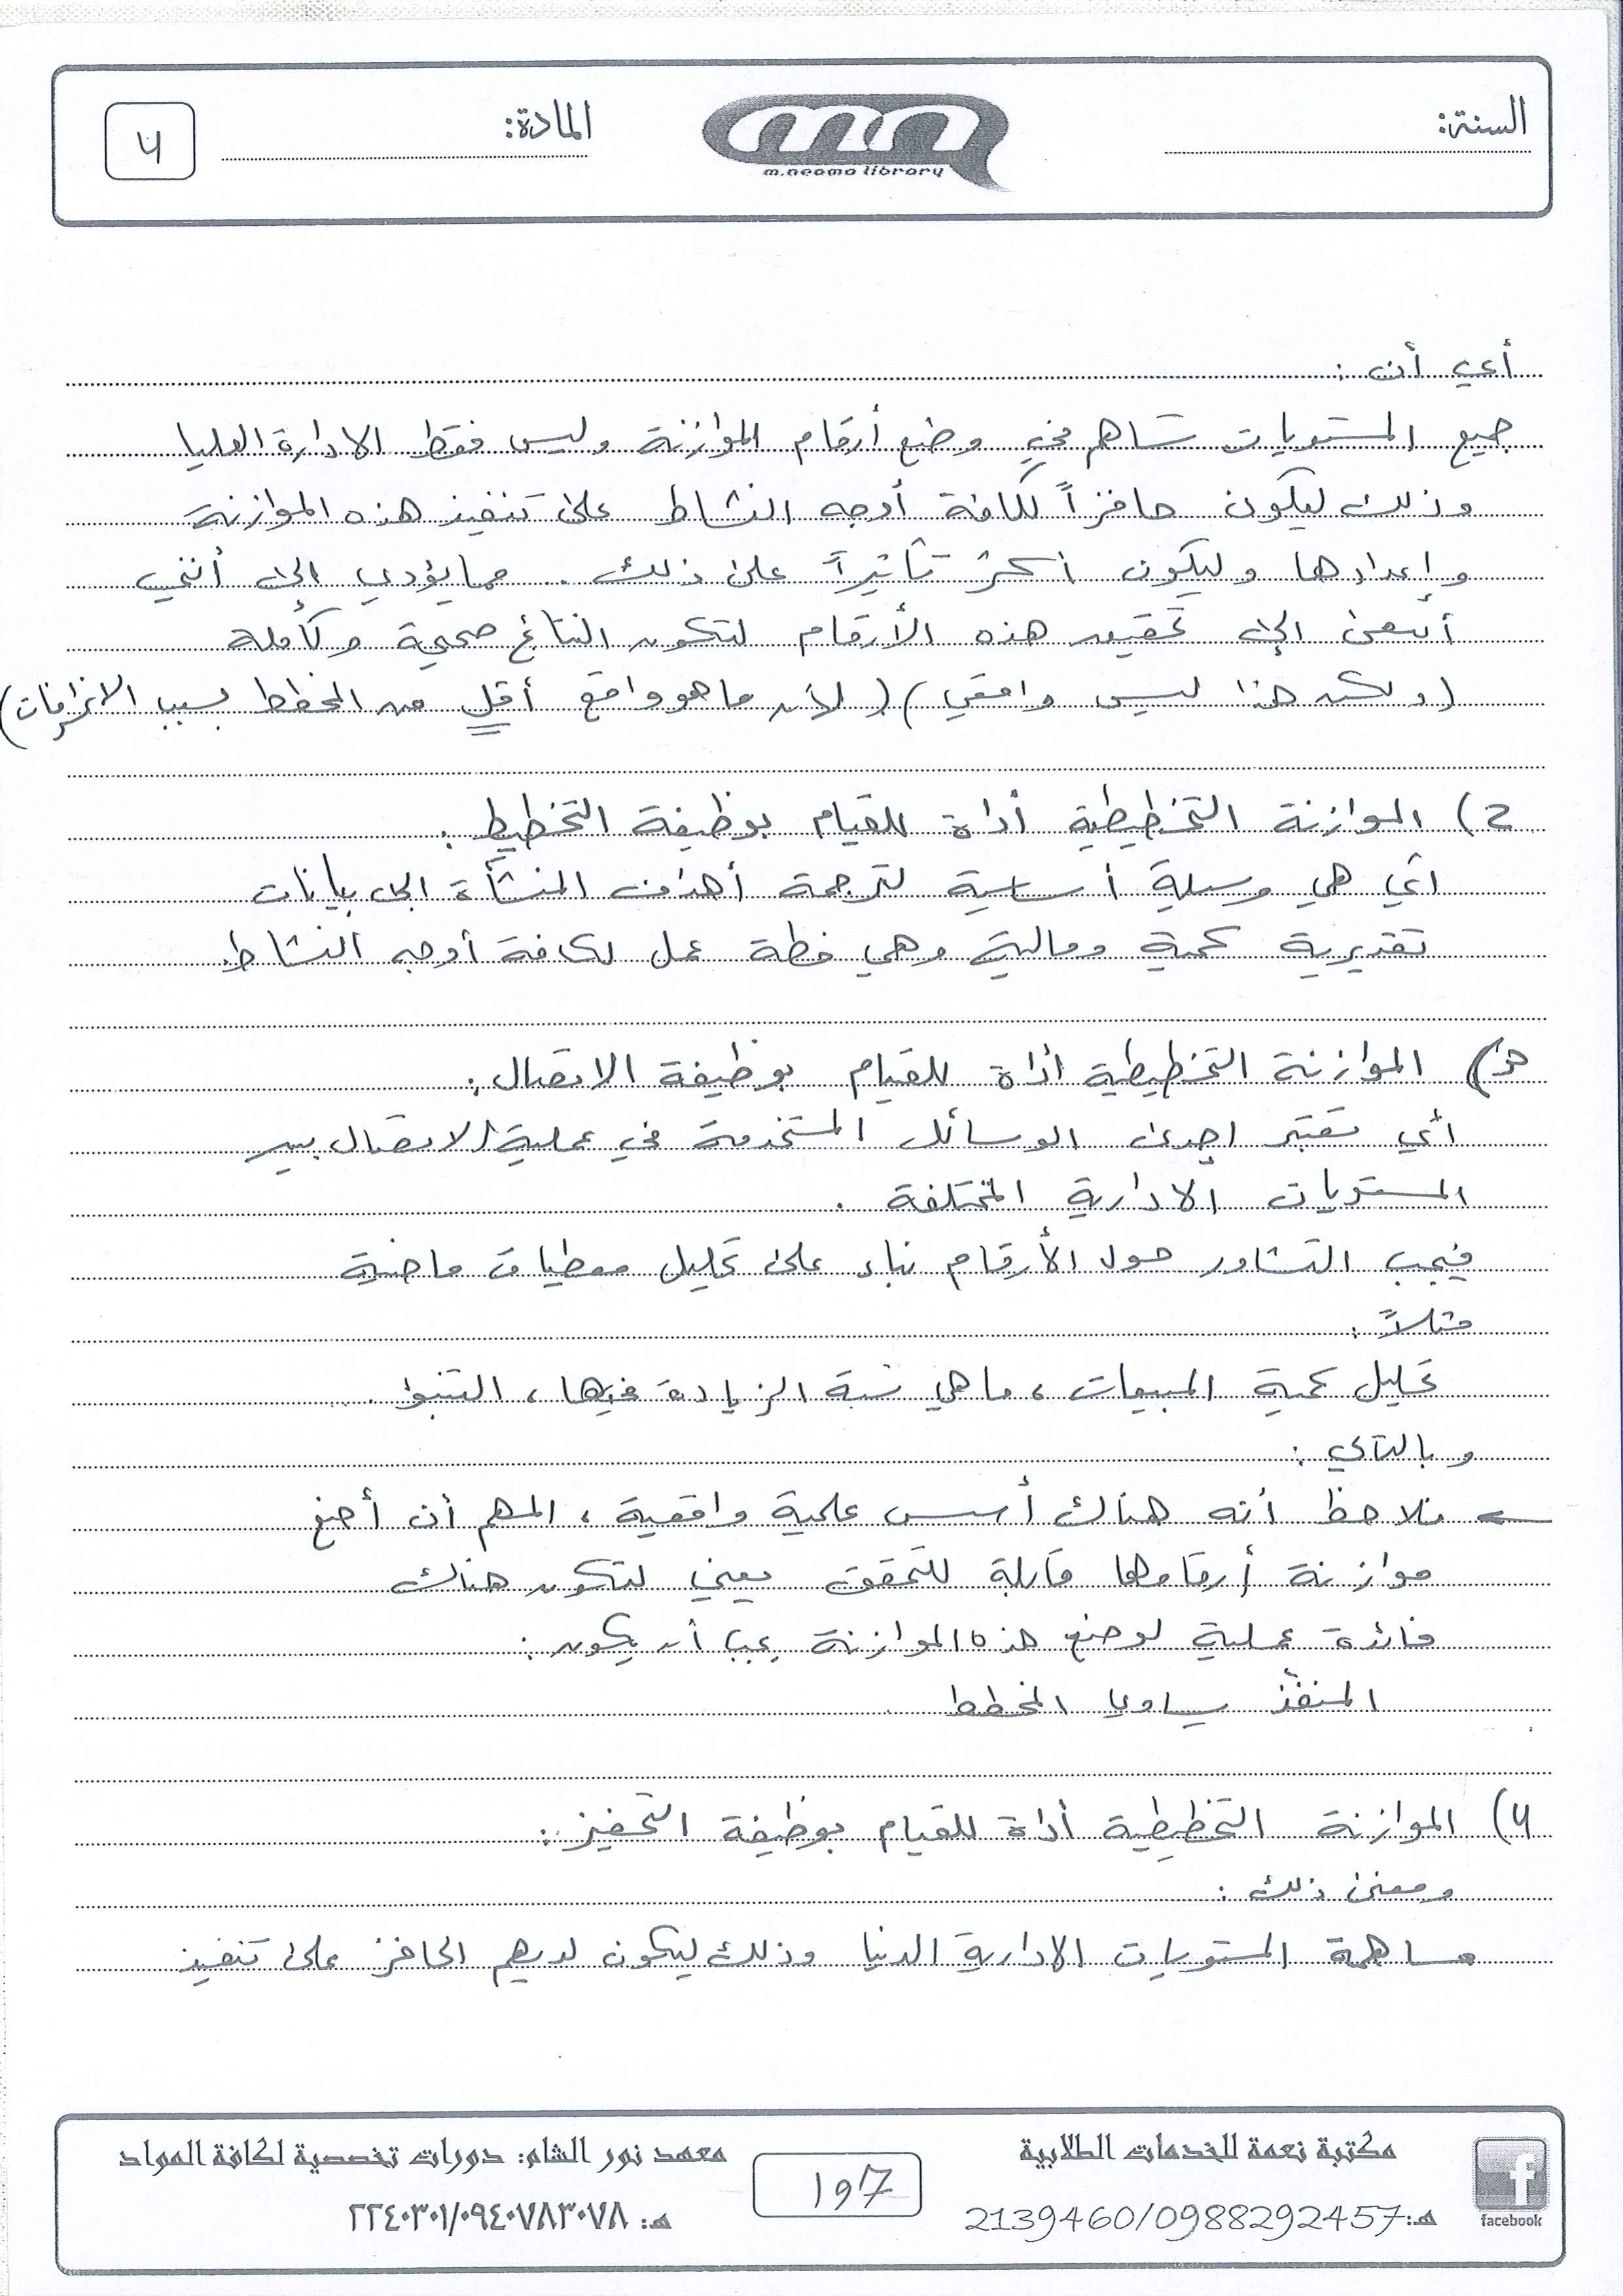 السنة:
m.neama library
المادة:
4
أي أن :
جميع المستويات تساهم في وضع أرقام الموازنة وليس فقط الادارة العليا
وذلك ليكون حافزاً لكافة أوجه النشاط على تنفيذ هذه الموازنة
وإعدادها وليكون أكثر تأثيراً على ذلك . مما يؤدي إلى أنني
أسعى إلى تحقيق هذه الأرقام لتكون النتائج صحيحة وكاملة
(ولكن هذا ليس واقعي) (لأن ما هو واقع أقل من المخطط بسبب الانحرافات)
2) الموازنة التخطيطية أداة للقيام بوظيفة التخطيط :
أي هي وسيلة أساسية لترجمة أهداف المنشأة إلى بيانات
تقديرية كمية ومالية وهي خطة عمل لكافة أوجه النشاط.
3) الموازنة التخطيطية أداة للقيام بوظيفة الاتصال :
أي تعتبر إحدى الوسائل المستخدمة في عملية الاتصال بين
المستويات الادارية المختلفة .
فيجب التشاور حول الأرقام بناء على تحليل معطيات ماضية
مثلاً :
تحليل كمية المبيعات ، ما هي نسبة الزيادة فيها ، التنبؤ .
وبالتالي :
نلاحظ أنه هناك أسس علمية واقعية ، المهم أن أضع
موازنة أرقامها قابلة للتحقق يعني لتكون هناك
فائدة عملية لوضع هذه الموازنة يجب أن يكون :
المنفذ يساوي المخطط
4) الموازنة التخطيطية أداة للقيام بوظيفة التحفيز :
ومعنى ذلك :
مساهمة المستويات الادارية الدنيا وذلك ليكون لديهم الحافز على تنفيذ
مكتبة نعمة للخدمات الطلابية
هـ:2139460/0988292457
facebook
197
معهد نور الشام: دورات تخصصية لكافة المواد
هـ: ٢٢٤٠٣٠١/٠٩٤٠٧٨٣٠٧٨